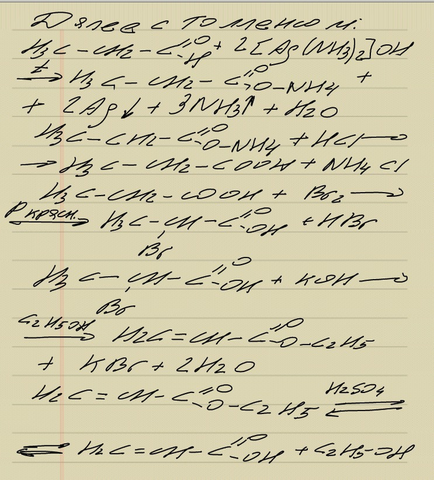 Далее с толменом:
H3C-CH2-C(=O)-H + 2[Ag(NH3)2]OH
t→ H3C-CH2-C(=O)-O-NH4 +
+ 2Ag↓ + 3NH3↑ + H2O
H3C-CH2-C(=O)-O-NH4 + HCl →
→ H3C-CH2-COOH + NH4Cl
H3C-CH2-COOH + Br2 →
P красн.→ H3C-CH-C(=O)-OH + HBr
Br
H3C-CH-C(=O)-OH + KOH →
Br
C2H5OH→ H2C=CH-C(=O)-O-C2H5
+ KBr + 2H2O
H2C=CH-C(=O)-O-C2H5 H2SO4⇌
⇌ H2C=CH-C(=O)-OH + C2H5-OH